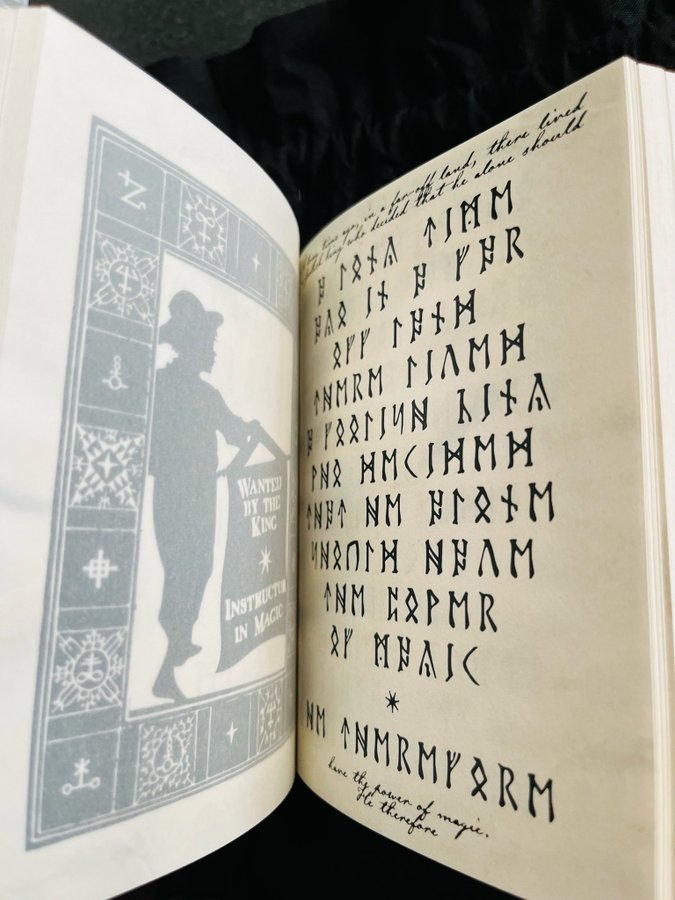 WANTED
BY THE
KING
INSTRUCTOR
IN MAGIC
long time ago, in a far-off land, there lived
foolish king who decided that he alone should
ᚨ ᛚᛟᚾᚷ ᛏᛁᛗᛖ
ᚨᚷᛟ ᛁᚾ ᚨ ᚠᚨᚱ
ᛟᚠᚠ ᛚᚨᚾᛞ
ᛏᚺᛖᚱᛖ ᛚᛁᚢᛖᛞ
ᚨ ᚠᛟᛟᛚᛁᛋᚺ ᚴᛁᚾᚷ
ᚹᚺᛟ ᛞᛖᚲᛁᛞᛖᛞ
ᛏᚺᚨᛏ ᚺᛖ ᚨᛚᛟᚾᛖ
ᛋᚺᛟᚢᛚᛞ ᚺᚨᚢᛖ
ᛏᚺᛖ ᛈᛟᚹᛖᚱ
ᛟᚠ ᛗᚨᚷᛁᚲ
ᚺᛖ ᛏᚺᛖᚱᛖᚠᛟᚱᛖ
have the power of magic.
He therefore